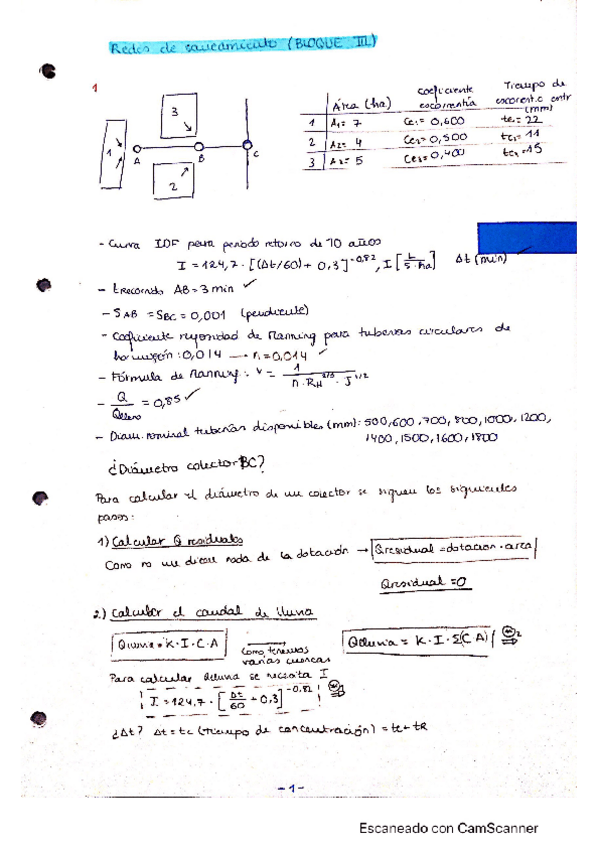 Redes de saneamiento (BLOQUE III)
1
Área (ha) coeficiente escorrentía Tiempo de escorent.c entr (mm)
1 A1= 7 Ce1= 0,600 te1= 22
2 A2= 4 Ce2= 0,500 tc2= 11
3 A3= 5 Ce3= 0,400 tc3= 15
3
1
A
B
C
2
- Curva IDF para periodo retorno de 10 años
I = 124,7 · [(Δt/60) + 0,3]^-0,82, I [L/s·ha] Δt (min)
- t recorrido AB = 3 min ✓
- SAB = SBC = 0,001 (pendiente)
- Coeficiente rugosidad de Manning para tuberías circulares de
hormigón: 0,014 → n = 0,014 ✓
- Fórmula de Manning: v = 1 / n · RH^2/3 · J^1/2
- Q / Qlleno = 0,85 ✓
- Diam. nominal tuberías disponibles (mm): 500, 600, 700, 800, 1000, 1200,
1400, 1500, 1600, 1800
¿Diámetro colector BC?
Para calcular el diámetro de un colector se siguen los siguientes
pasos:
1) Calcular Q residuales
Como no me dicen nada de la dotación → Qresidual = dotación · area
Qresidual = 0
2) Calcular el caudal de lluvia
Qlluvia = K · I · C · A
Como tenemos varias cuencas
Qlluvia = K · I · Σ(C A) 2
Para calcular Qlluvia se necesita I
I = 124,7 · [Δt/60 + 0,3]^-0,82
¿Δt? Δt = tc (tiempo de concentración) = te + tR
- 1 -
Escaneado con CamScanner